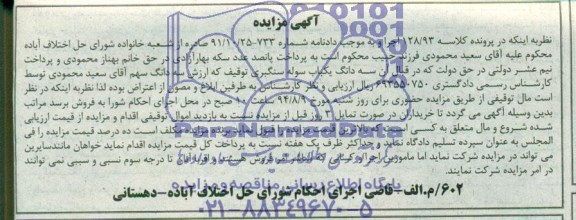 آگهی مزایده
نظریه اینکه در پرونده کلاسه ۱۲۸/۹۳ اجرا به موجب دادنامه شماره ۷۳۳-۹۱/۱۰/۲۵ صادره از شعبه خانواده شورای حل اختلاف آباده
محکوم علیه آقای سعید محمودی فرزند حبیب محکوم است به پرداخت پانصد عدد سکه بهار آزادی در حق خانم بهناز محمودی و پرداخت
نیم عشر دولتی در حق دولت که در قبال آن سه دانگ یکباب سوله سنگبری توقیف که ارزش سه دانگ سهم آقای سعید محمودی توسط
کارشناس رسمی دادگستری ریال ارزیابی و نظر کارشناس به طرفین ابلاغ و مصون از اعتراض بوده لذا نظریه اینکه در نظر
است مال توقیفی از طریق مزایده حضوری برای روز شنبه مورخ ۹۴/۸/۹ ساعت صبح در محل اجرای احکام شورا به فروش برسد مراتب
بدین وسیله آگهی می گردد تا خریداران در صورت تمایل ۳ روز قبل از مزایده نسبت به بازدید اموال توقیفی اقدام و مزایده از قیمت ارزیابی
شده شروع و مال متعلق به کسی است که بالاترین قیمت مزایده را قبول نماید برنده مزایده مکلف است ده درصد قیمت مزایده را فی
المجلس به عنوان سپرده تسلیم دادگاه نماید و حداکثر ظرف یک هفته نسبت به پرداخت کل قیمت مزایده اقدام نماید خواهان مانند سایرین
می تواند در مزایده شرکت نماید اما مامورین اجرا و کسانی که و اقربا آنها تا درجه سوم نسبی و سببی نمی توانند
در امر مزایده شرکت نمایند.
۶۰۲/م.الف-قاضی اجرای احکام شورای حل اختلاف آباده-دهستانی
پایگاه اطلاع رسانی مناقصه و مزایده
۰۲۱-۸۸۳۴۹۶۷۰-۵